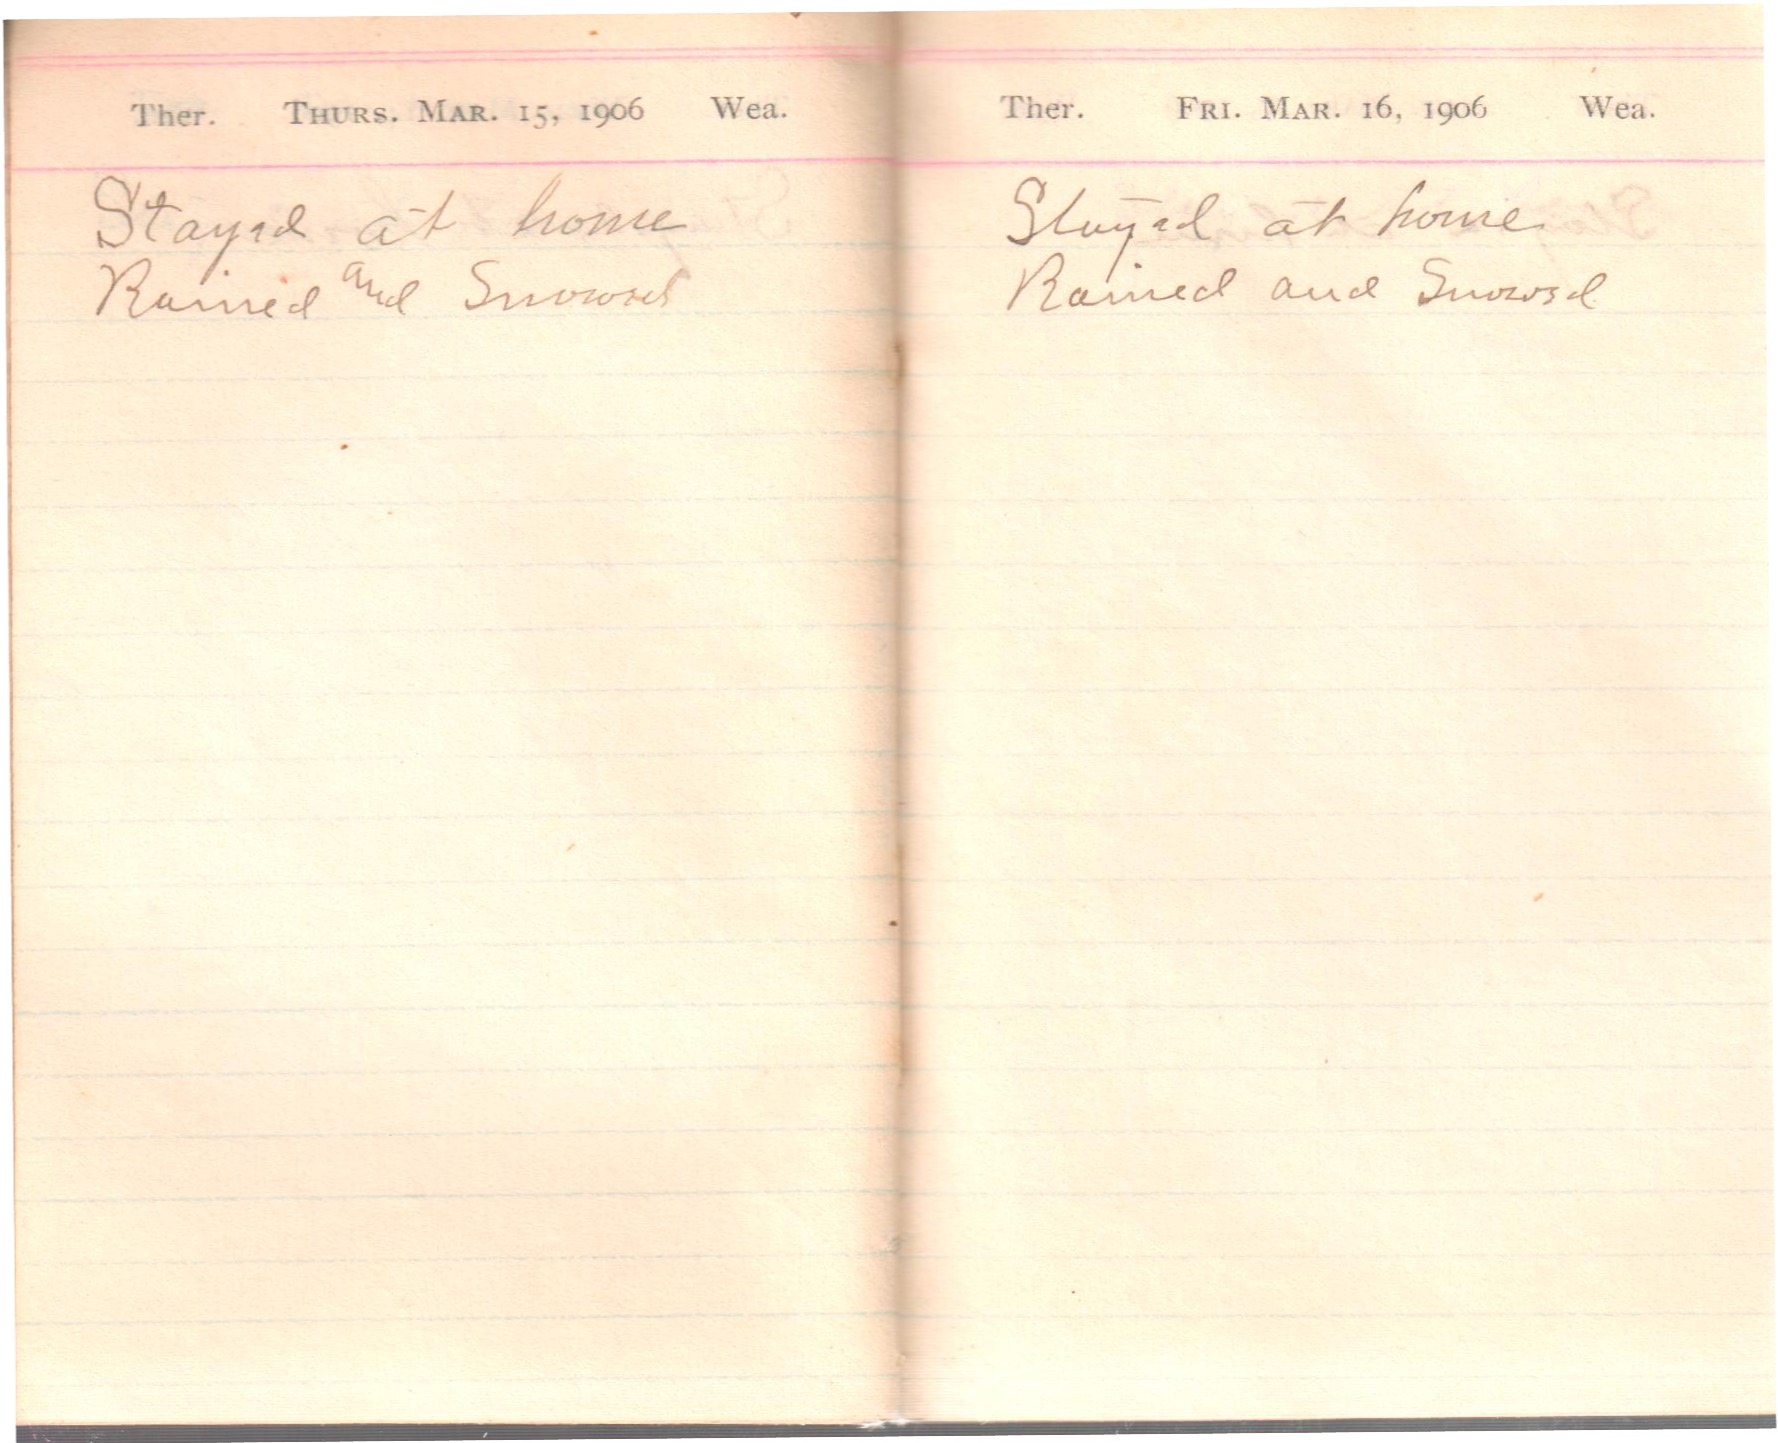 Ther. THURS. MAR. 15, 1906 Wea.
Stayed at home
Rained and Snowed
Ther. FRI. MAR. 16, 1906 Wea.
Stayed at home
Rained and Snowed